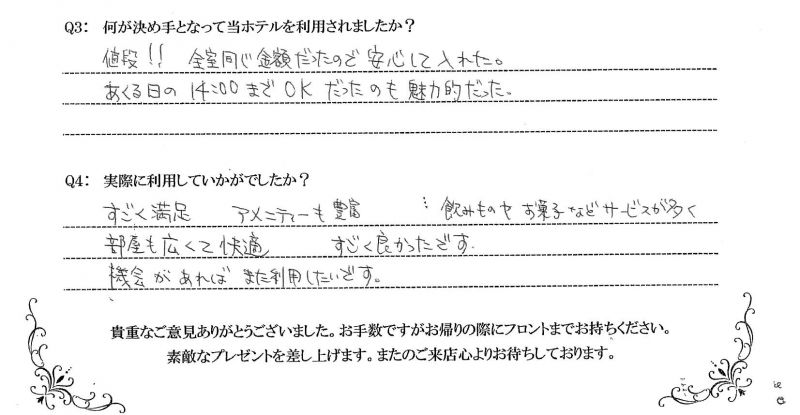 Q3: 何が決め手となって当ホテルを利用されましたか？
値段!! 全室同じ金額だったので安心して入れた。
あくる日の14:00までOKだったのも魅力的だった。
Q4: 実際に利用していかがでしたか？
すごく満足 アメニティーも豊富 飲みものやお菓子などサービスが多く
部屋も広くて快適 すごく良かったです.
機会があればまた利用したいです。
貴重なご意見ありがとうございました。お手数ですがお帰りの際にフロントまでお持ちください。
素敵なプレゼントを差し上げます。またのご来店心よりお待ちしております。